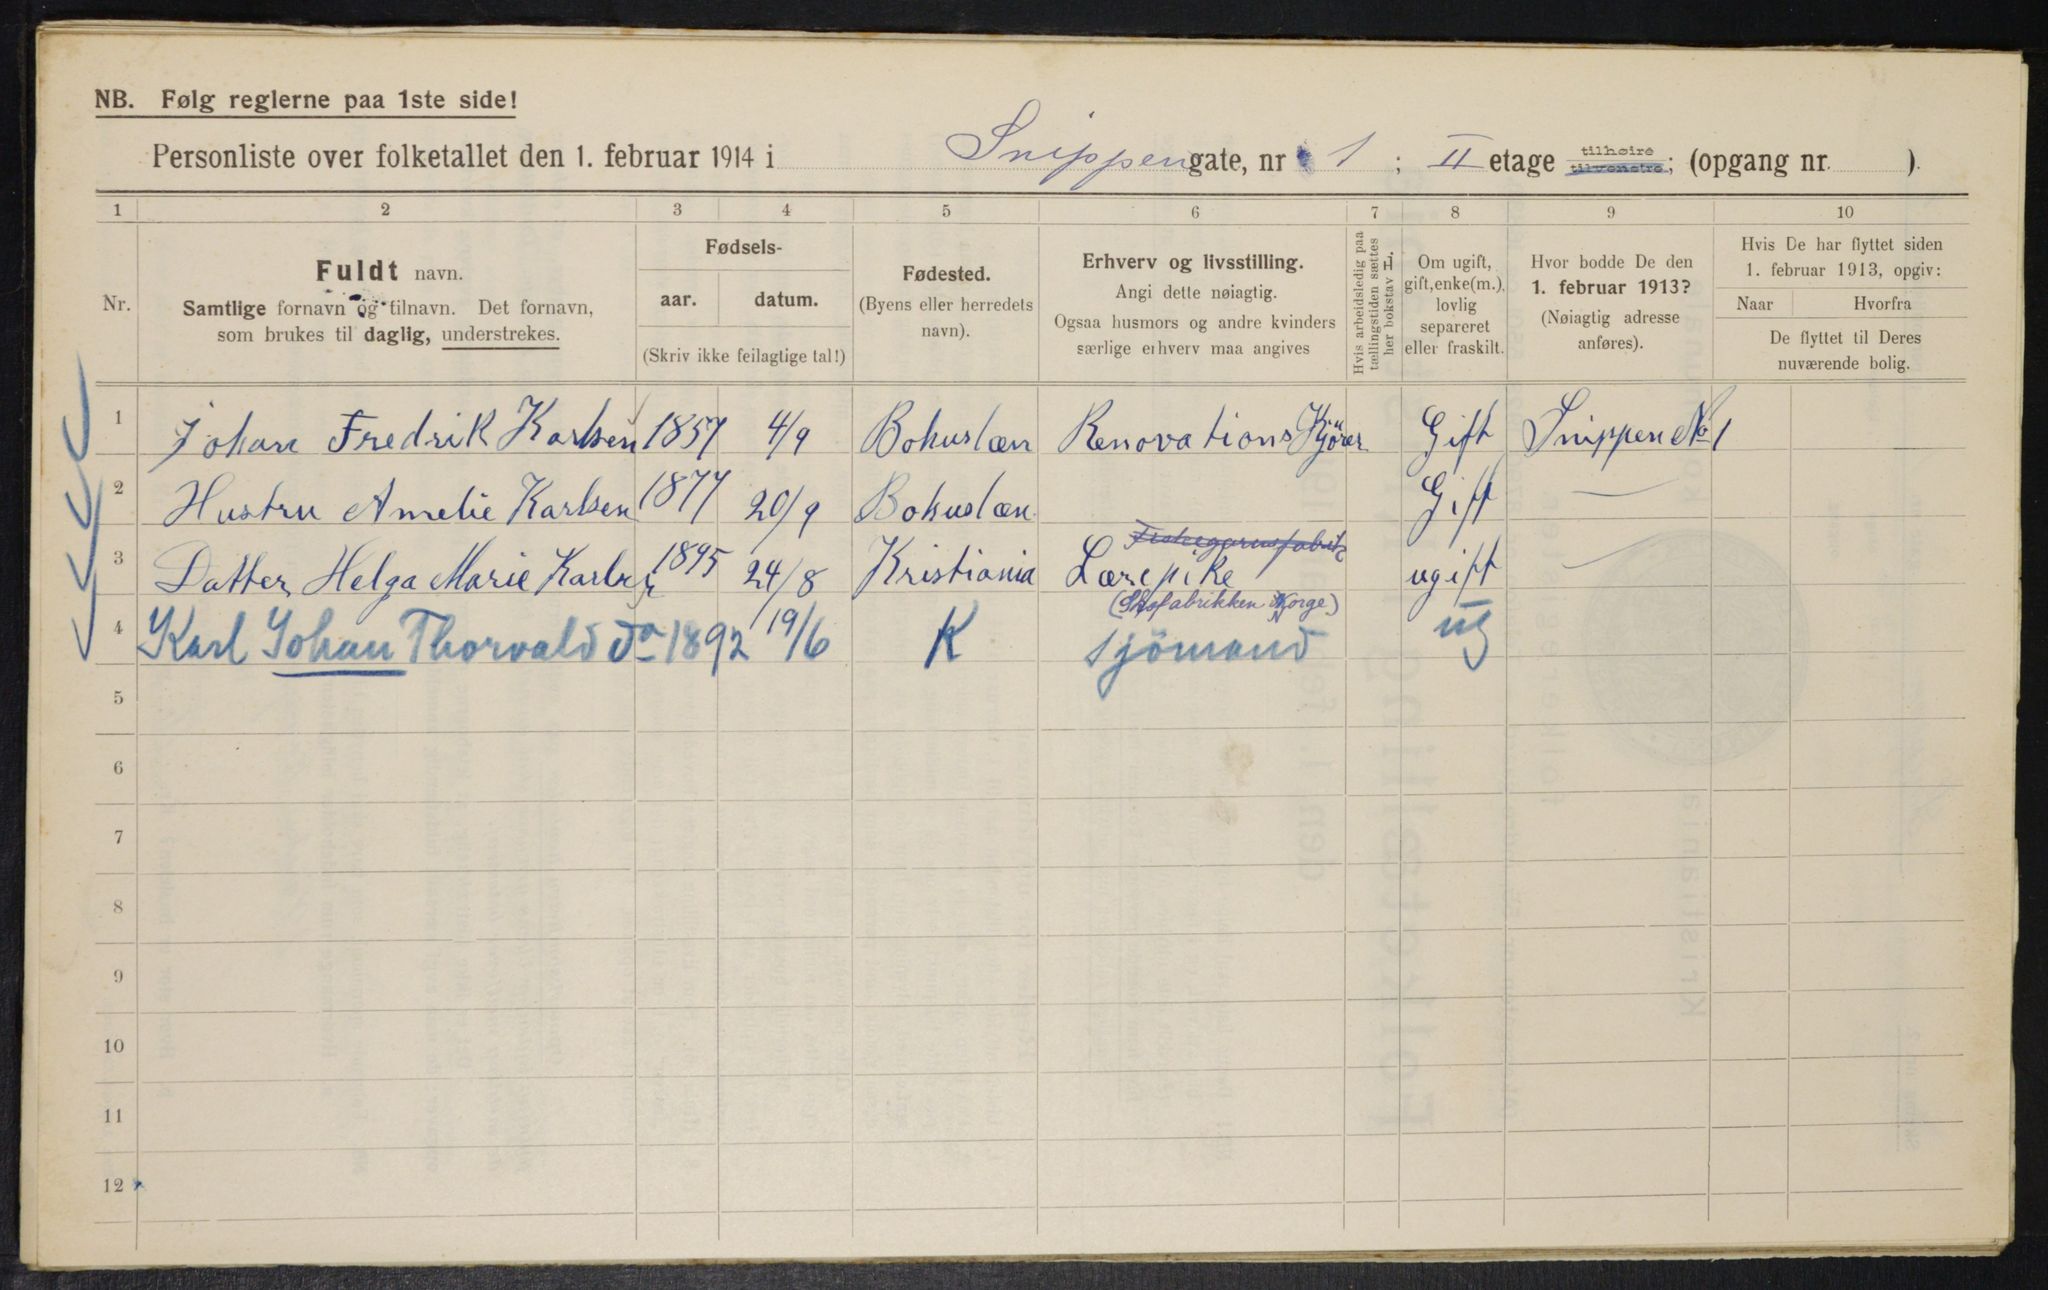 NB. Følg reglerne paa 1ste side!
Personliste over folketallet den 1. februar 1914 i Snippen gate, nr 1 ; II etage tilhøire tilvenstre; (opgang nr. ).
1 2 3 4 5 6 7 8 9 10
Nr.
Fuldt navn.
Samtlige fornavn og tilnavn. Det fornavn,
som brukes til daglig, understrekes.
Fødsels-
aar. datum.
(Skriv ikke feilagtige tal!)
Fødested.
(Byens eller herredets
navn).
Erhverv og livsstilling.
Angi dette nøiagtig.
Ogsaa husmors og andre kvinders
særlige erhverv maa angives
Hvis arbeidsledig paa
tællingstiden sættes
her bokstav L.
Om ugift,
gift, enke(m.),
lovlig
separeret
eller fraskilt.
Hvor bodde De den
1. februar 1913?
(Nøiagtig adresse
anføres).
Hvis De har flyttet siden
1. februar 1913, opgiv:
Naar Hvorfra
De flyttet til Deres
nuværende bolig.
1 Johan Fredrik Karlsen 1857 4/9 Bohuslæn Renovations Kjörer Gift Snippen No 1
2 Hustru Amelie Karlsen 1877 20/9 Bohuslæn Gift —
Fiskegarnsfabrik
3 Datter Helga Marie Karlsen 1895 24/8 Kristiania Lærepike ugift —
(Skofabrikken Norge)
4 Karl Johan Thorvald do 1892 19/6 K sjömand ug
5
6
7
8
9
10
11
12